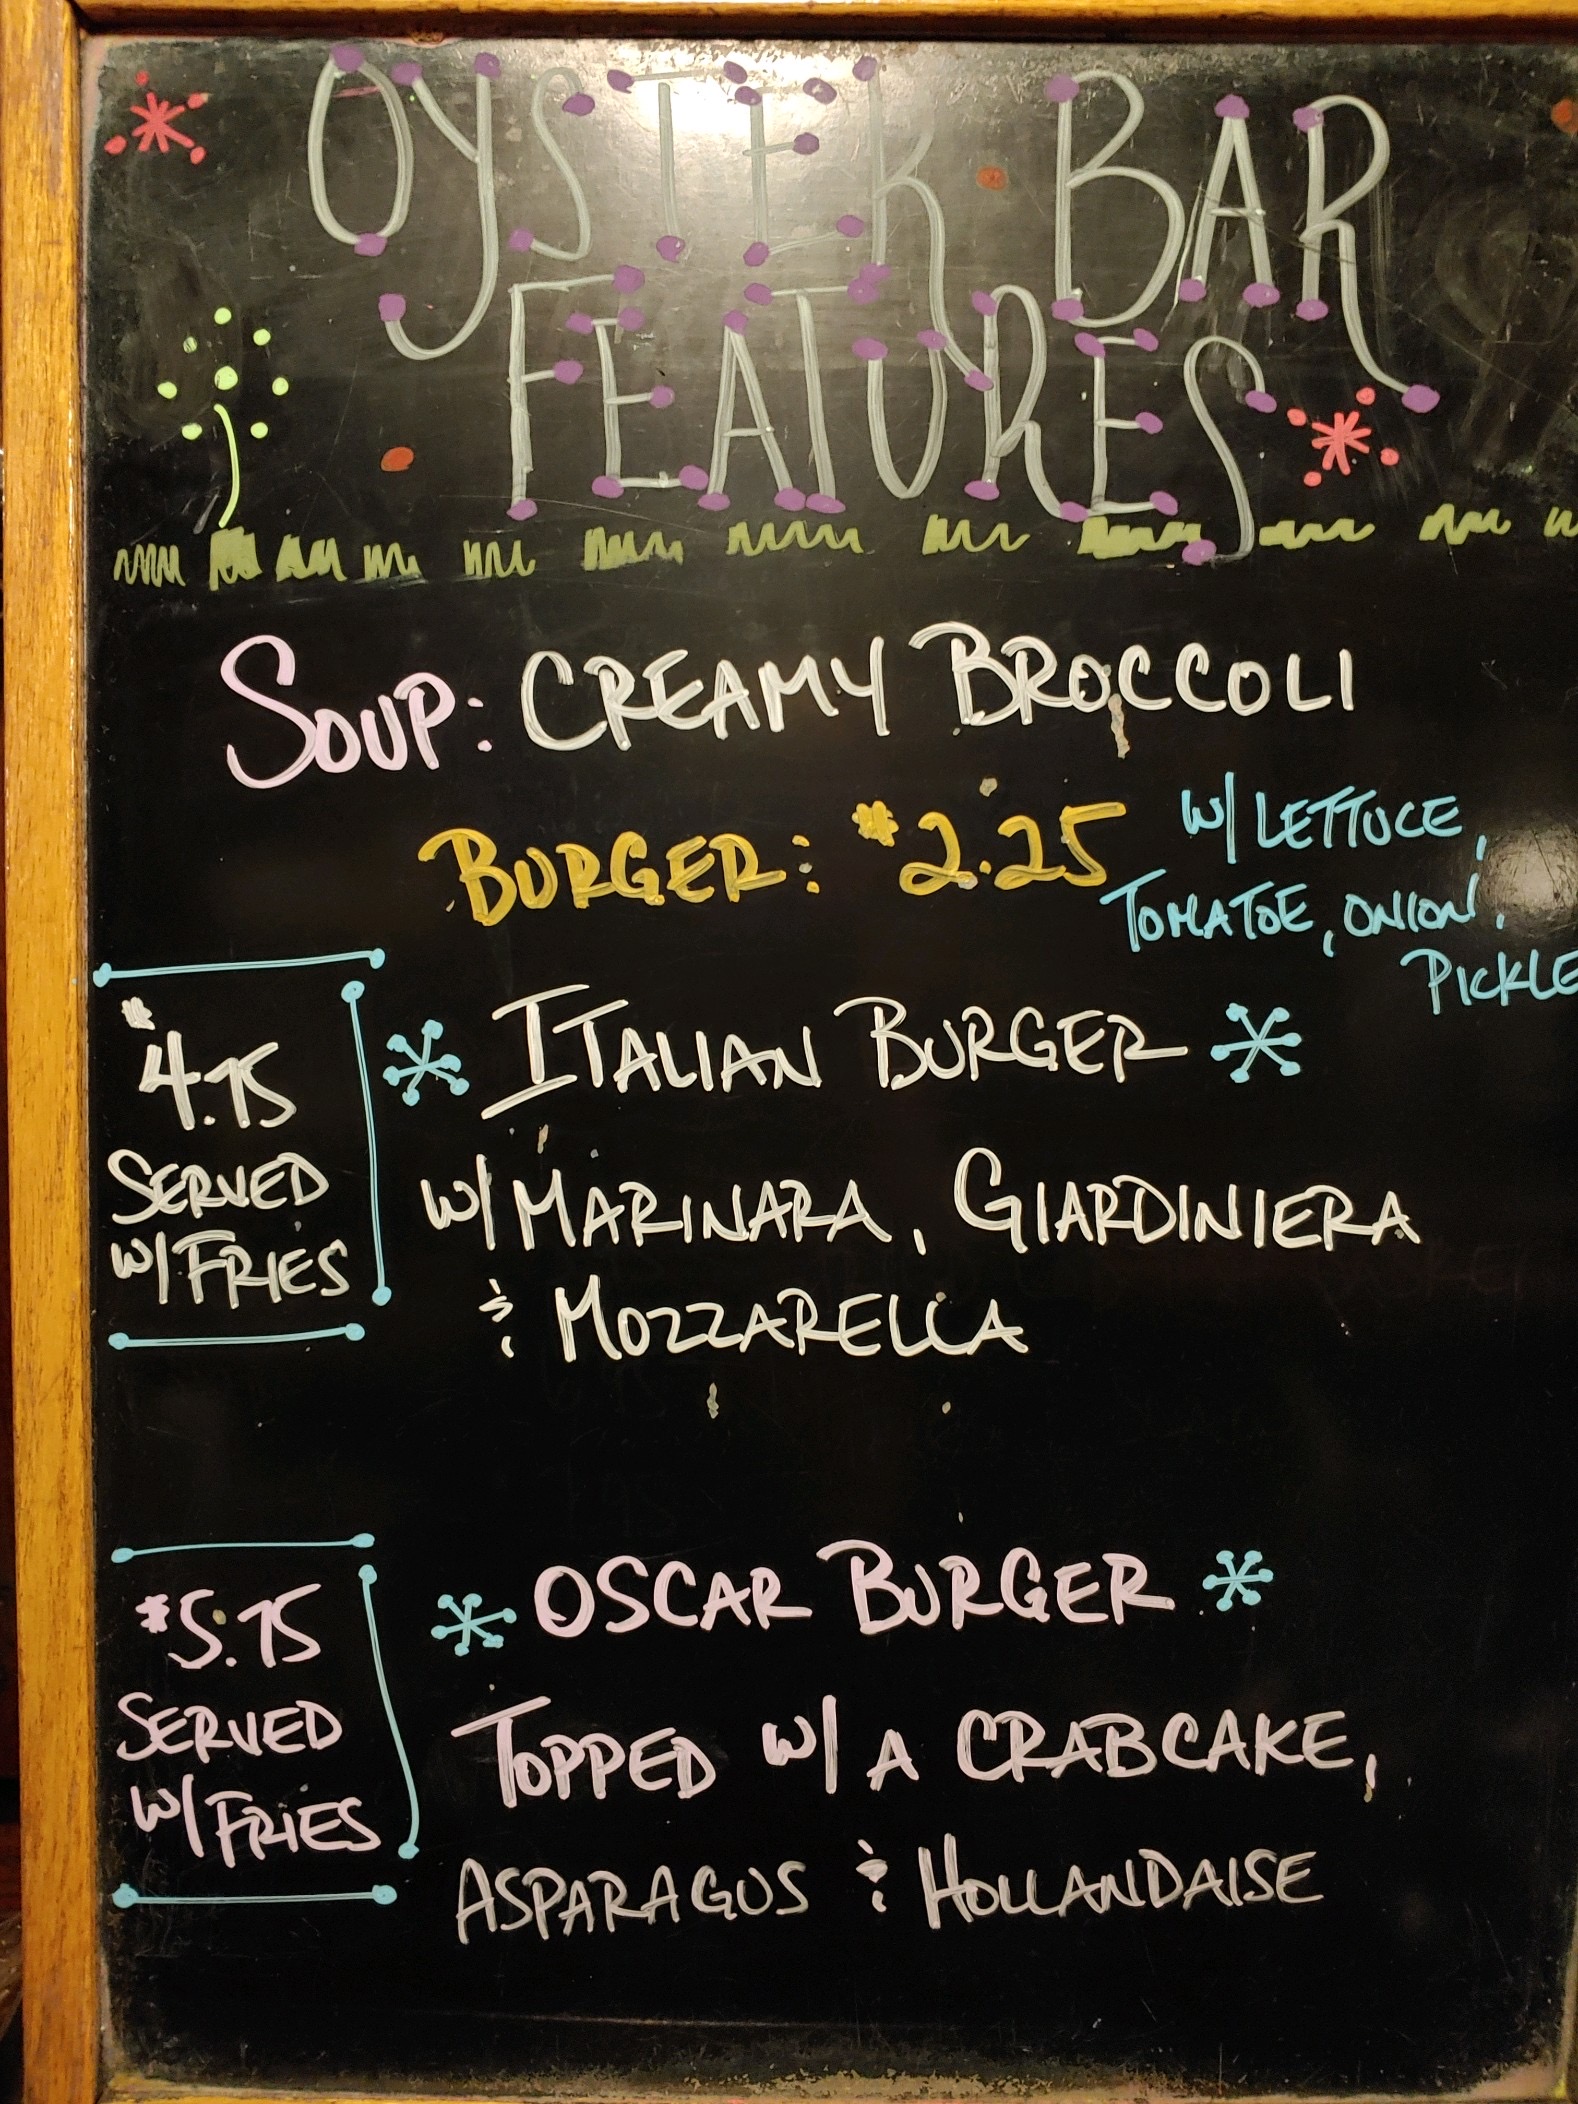 OYSTER BAR
FEATURES
SOUP: CREAMY BROCCOLI
BURGER: $2.25 W/ LETTUCE,
TOMATOE, ONION,
PICKLE
$4.75
SERVED
W/ FRIES
ITALIAN BURGER
W/ MARINARA, GIARDINIERA
& MOZZARELLA
$5.75
SERVED
W/ FRIES
OSCAR BURGER
TOPPED W/ A CRABCAKE,
ASPARAGUS & HOLLANDAISE